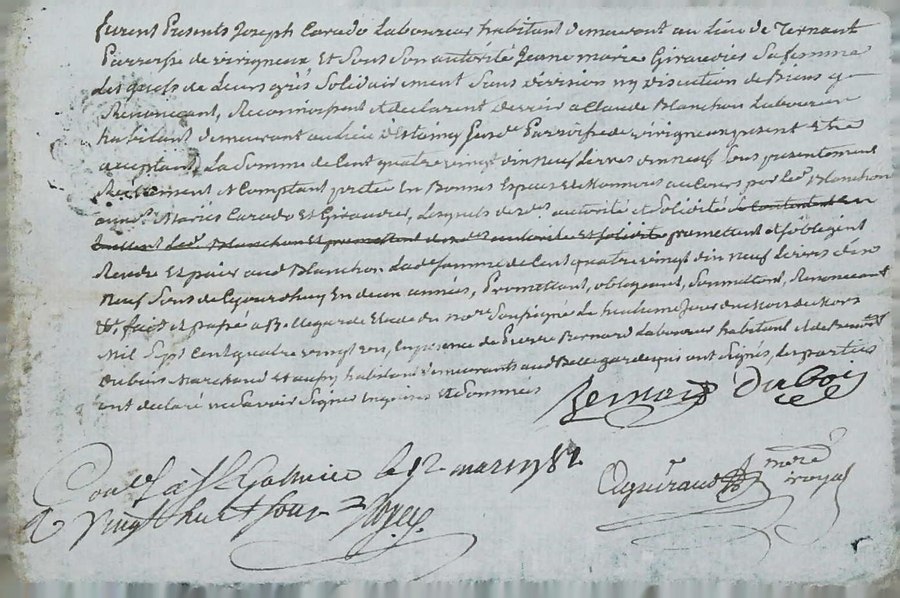 furent presents Joseph Carado Laboureur habitant demeurant au lieu de Ternant
Parroisse de virigneux Et sous son autorité Jeane marie Giraudier sa femme
lesquels de leurs grés solidairement sans division ny discution de Biens y
Renoncant, Reconnoissent et declarent devoir a Claude Blanchon Laboureur
habitant demeurant au lieu d'Estaing susd. Parroisse de virigneux present Et
acceptant, La somme de Cent quatre vingt dix neuf Livres dix neuf sous presentement
Reellement et Comptant pretée En Bonnes Especes et Monnoies au Cours par led. Blanchon
auxd. Mariés Carado Et Giraudier, lesquels de d. autorité et solidité
promettent et s'obligent
Rendre Et paier aud Blanchon lad. somme de Cent quatre vingt dix neuf Livres dix
neuf sous de Ce jourdhuy En deux années, Promettant, obligeant, soumettant, Renoncant
fait et passé a Bellegarde Etude du no.re soussigné le huitieme Jour du Mois de Mars
Mil Sept Cent quatre vingt deux, En presence de Pierre Bernard Laboureur habitant et de Benoit
Dubois Marchand habitant demeurants aud Bellegarde qui ont signés, les parties
ont declaré ne savoir signer Enquises Et Sommées
Bernard Dubois
Coule a St Galmier le 12 mars 1782
R vingt huit sous
Aguiraud no.re royal